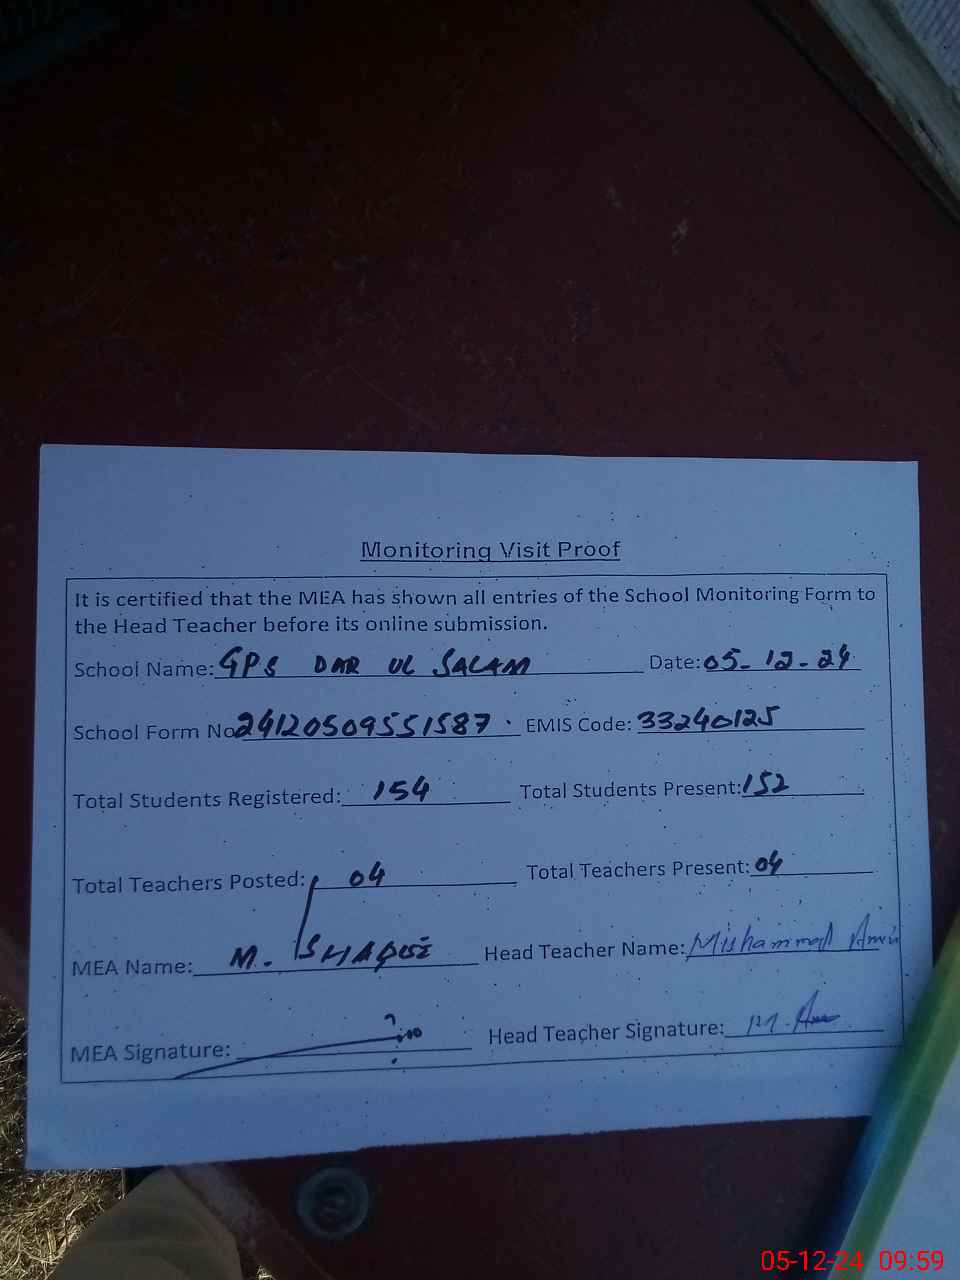 Monitoring Visit Proof
It is certified that the MEA has shown all entries of the School Monitoring Form to
the Head Teacher before its online submission.
School Name: GPS DAR UL SALAM Date: 05-12-24
School Form No 24120509551587 EMIS Code: 33240125
Total Students Registered: 154 Total Students Present: 152
Total Teachers Posted: 04 Total Teachers Present: 04
MEA Name: M. Head Teacher Name: Muhammad Amin
MEA Signature: Head Teacher Signature: M.
05-12-24 09:59